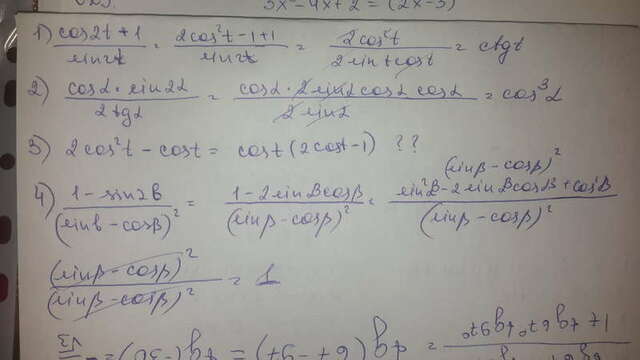 3x² - 4x + 2 = (2x-3)
1) (cos2t + 1)/(sin2t) = (2cos²t - 1 + 1)/(sin2t) = (2cos²t)/(2sint cost) = ctgt
2) (cosα · sin2α)/(2tgα) = (cosα · 2sinα cosα cosα)/(2sinα) = cos³α
3) 2cos²t - cost = cost(2cost - 1) ??
(sinβ - cosβ)²
4) (1 - sin2β)/(sinβ - cosβ)² = (1 - 2sinβcosβ)/(sinβ - cosβ)² = (sin²β - 2sinβcosβ + cos²β)/(sinβ - cosβ)²
(sinβ - cosβ)²/(sinβ - cosβ)² = 1